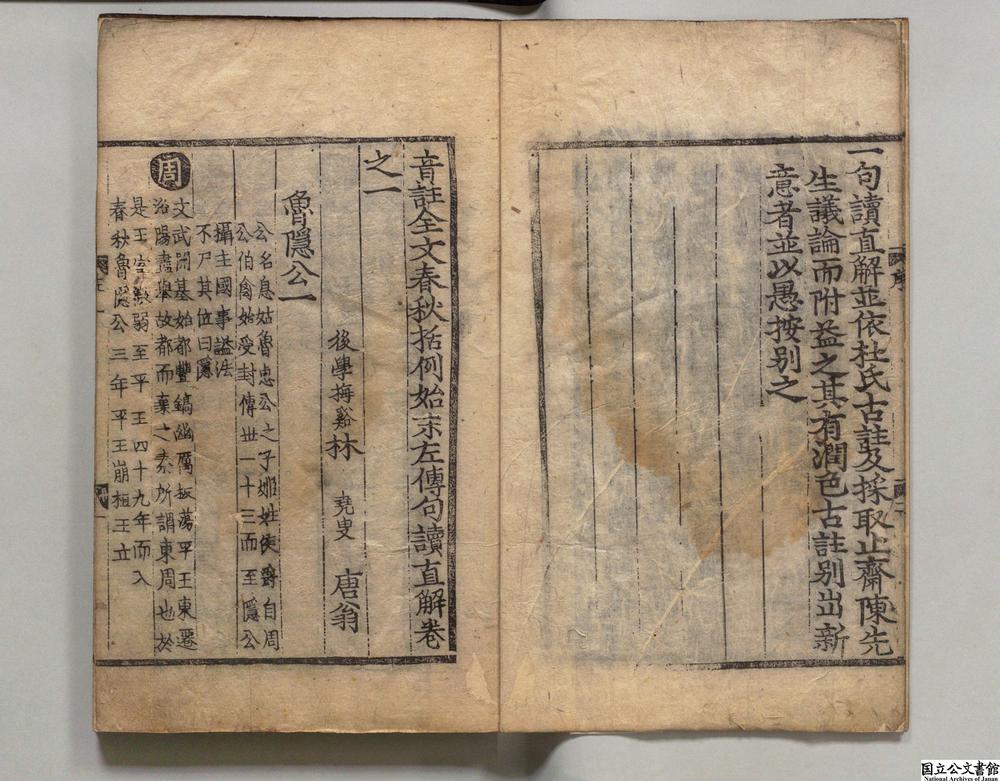 一句讀直解並依杜氏古註及採取止齋陳先
生議論而附益之其有潤色古註別出新
意者並以愚按別之
序
音註全文春秋括例始末左傳句讀直解卷
之一
後學梅谿林 堯叟 唐翁
魯隱公一
公名息姑魯惠公之子姬姓侯爵自周
公伯禽始受封傳世一十三而至隱公
攝主國事謚法
不尸其位曰隱
周
文武開基始都豐鎬幽厲板蕩平王東遷
洛陽盡舉故都而棄之秦所謂東周也於
是王室微弱至平王四十九年而入
春秋魯隱公三年平王崩桓王立
国立公文書館
National Archives of Japan